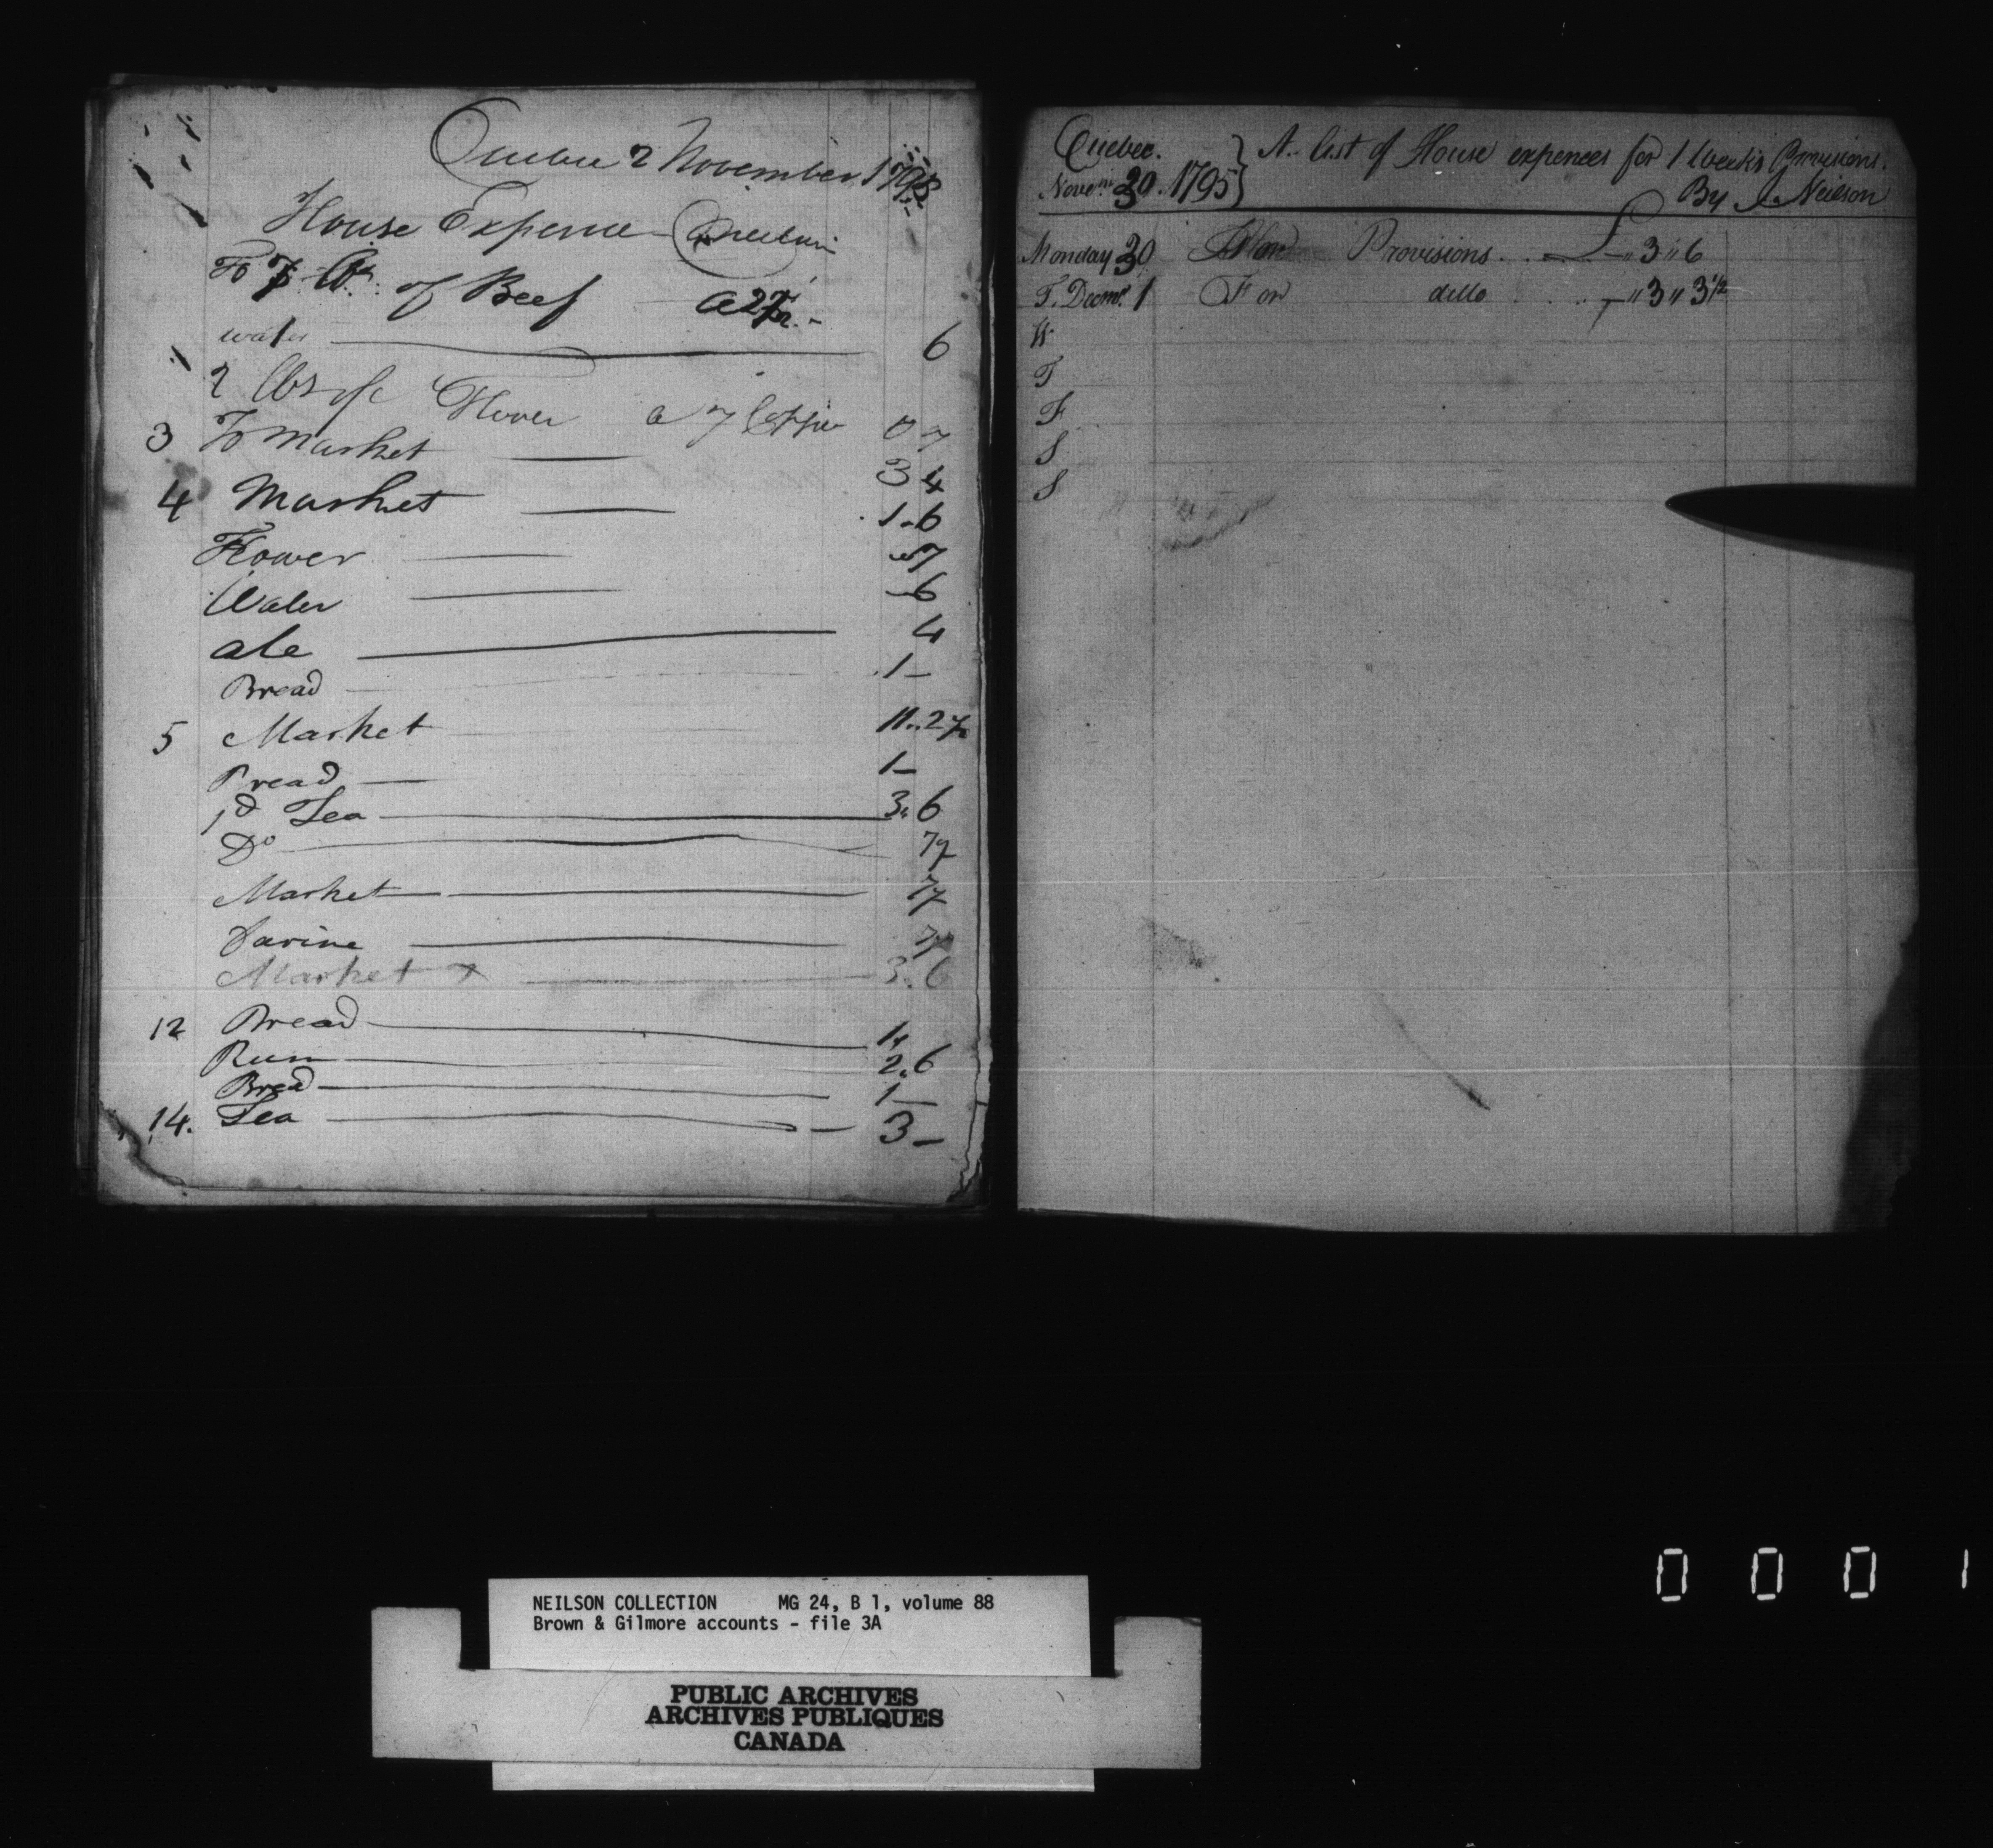 Quebec 2 November 179
House Expence
To 7 lbs. of Beef a 2
water 6
2 lbs of Flower a 7 0 7
3 To market 3 4
4 Market 1-6
Flower 7
Water 6
ale 4
Bread 1-
5 Market 11..2
Bread 1-
1d Tea 3.6
Do 7
Market
Farine
Market 3.6
12 Bread 1
Rum 2.6
Bread 1-
14. Tea 3-
Quebec. A. list of House expences for 1 Week's Provisions.
Novem 30. 1795 By J. Neilson
Monday 30 For Provisions. £ - " 3 " 6
T. Decmr. 1 For ditto - " 3 " 3 1/2
W
T
F
S
S
0 0 0 1
NEILSON COLLECTION MG 24, B 1, volume 88
Brown & Gilmore accounts - file 3A
PUBLIC ARCHIVES
ARCHIVES PUBLIQUES
CANADA